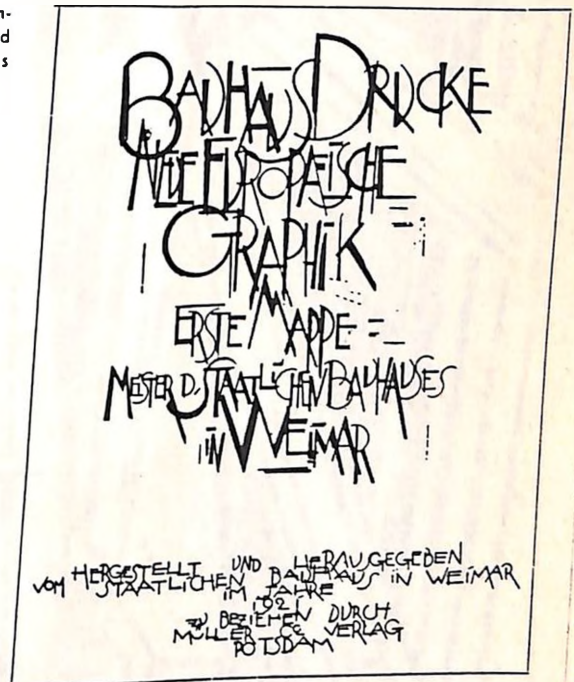 n-
d
s
BAUHAUS DRUCKE
NEUE EUROPAEISCHE
GRAPHIK
ERSTE MAPPE
MEISTER D. STAATLICHEN BAUHAUSES
IN WEIMAR
HERGESTELLT UND HERAUSGEGEBEN
VOM STAATLICHEN BAUHAUS IN WEIMAR
IM JAHRE
1921
ZU BEZIEHEN DURCH
MÜLLER & Co VERLAG
POTSDAM